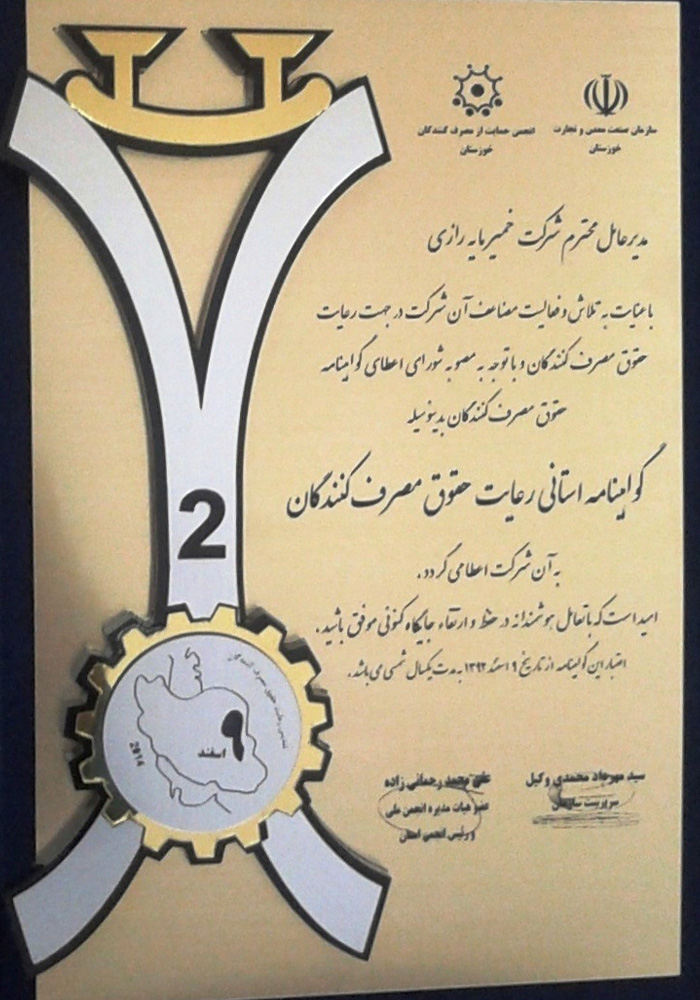 سازمان صنعت معدن و تجارت
خوزستان
انجمن حمایت از مصرف کنندگان
خوزستان
مدیرعامل محترم شرکت خمیرمایه رازی
با عنایت به تلاش و فعالیت مضاعف آن شرکت در جهت رعایت
حقوق مصرف کنندگان و با توجه به مصوبه شورای اعطای گواهینامه
حقوق مصرف کنندگان بدینوسیله
گواهینامه استانی رعایت حقوق مصرف کنندگان
به آن شرکت اعطا می گردد.
امید است که با تعامل هوشمندانه در حفظ و ارتقاء جایگاه کنونی موفق باشید.
اعتبار این گواهینامه از تاریخ ۹ اسفند ۱۳۹۲ به مدت یکسال شمسی می باشد.
سید مهرداد محمدی وکیل
سرپرست سازمان
علی محمد رحمانی زاده
عضو هیات مدیره انجمن ملی
و رئیس انجمن استان
2
۹
اسفند
2014